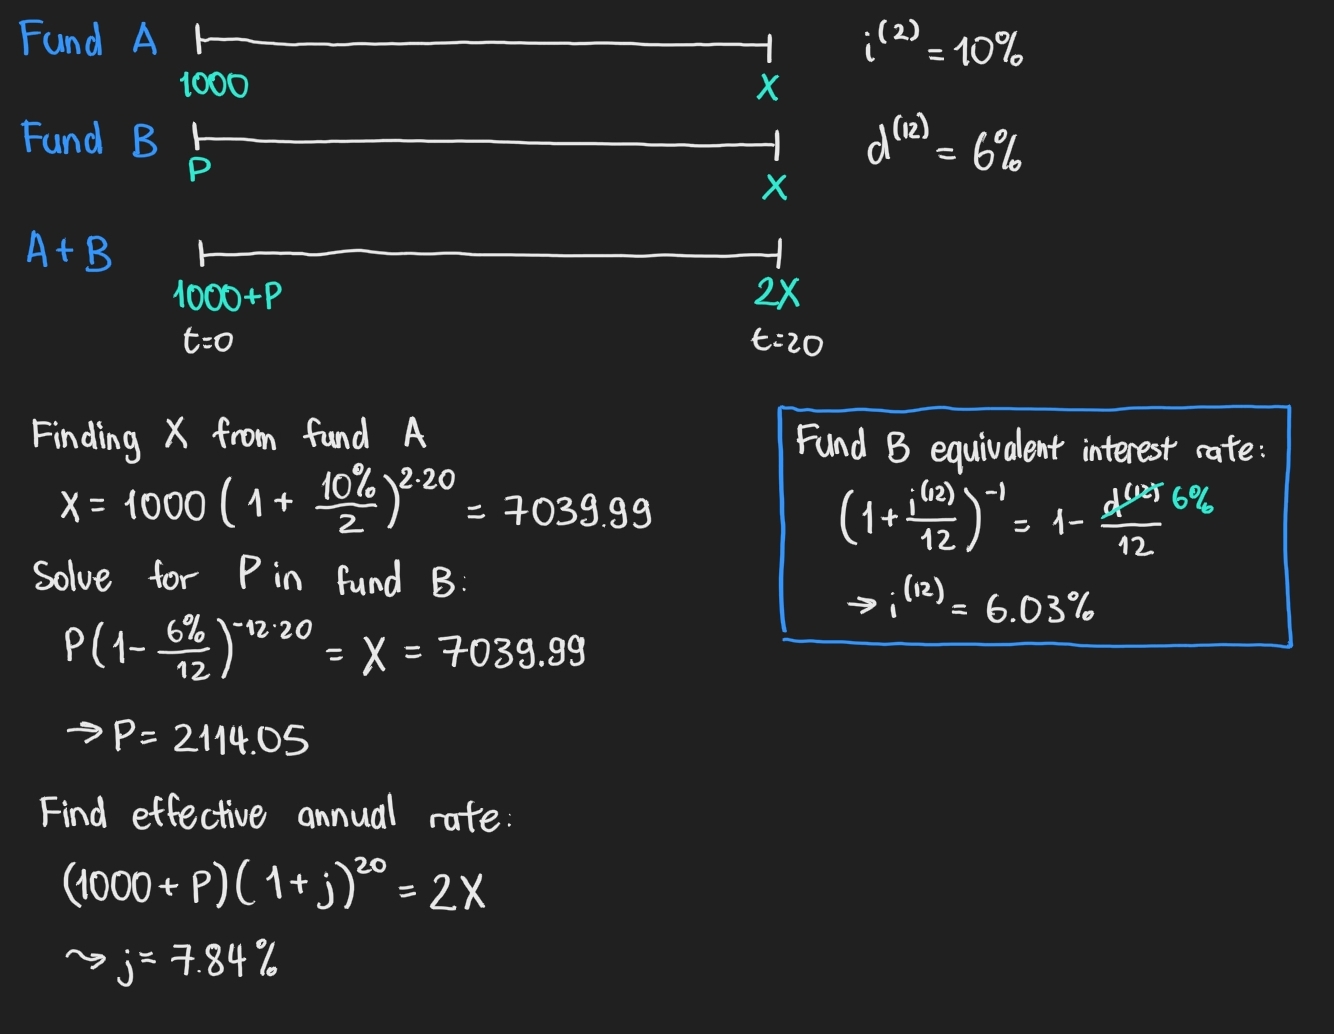 Fund A
i^(2) = 10%
1000
X
Fund B
d^(12) = 6%
P
X
A+B
1000+P
2X
t=0
t=20
Finding X from fund A
X = 1000 (1 + 10%/2)^2·20 = 7039.99
Solve for P in fund B:
P(1 - 6%/12)^-12·20 = X = 7039.99
→ P = 2114.05
Find effective annual rate:
(1000 + P)(1 + j)^20 = 2X
⤳ j = 7.84%
Fund B equivalent interest rate:
(1 + i^(12)/12)^-1 = 1 - d^(12)/12 6%
→ i^(12) = 6.03%